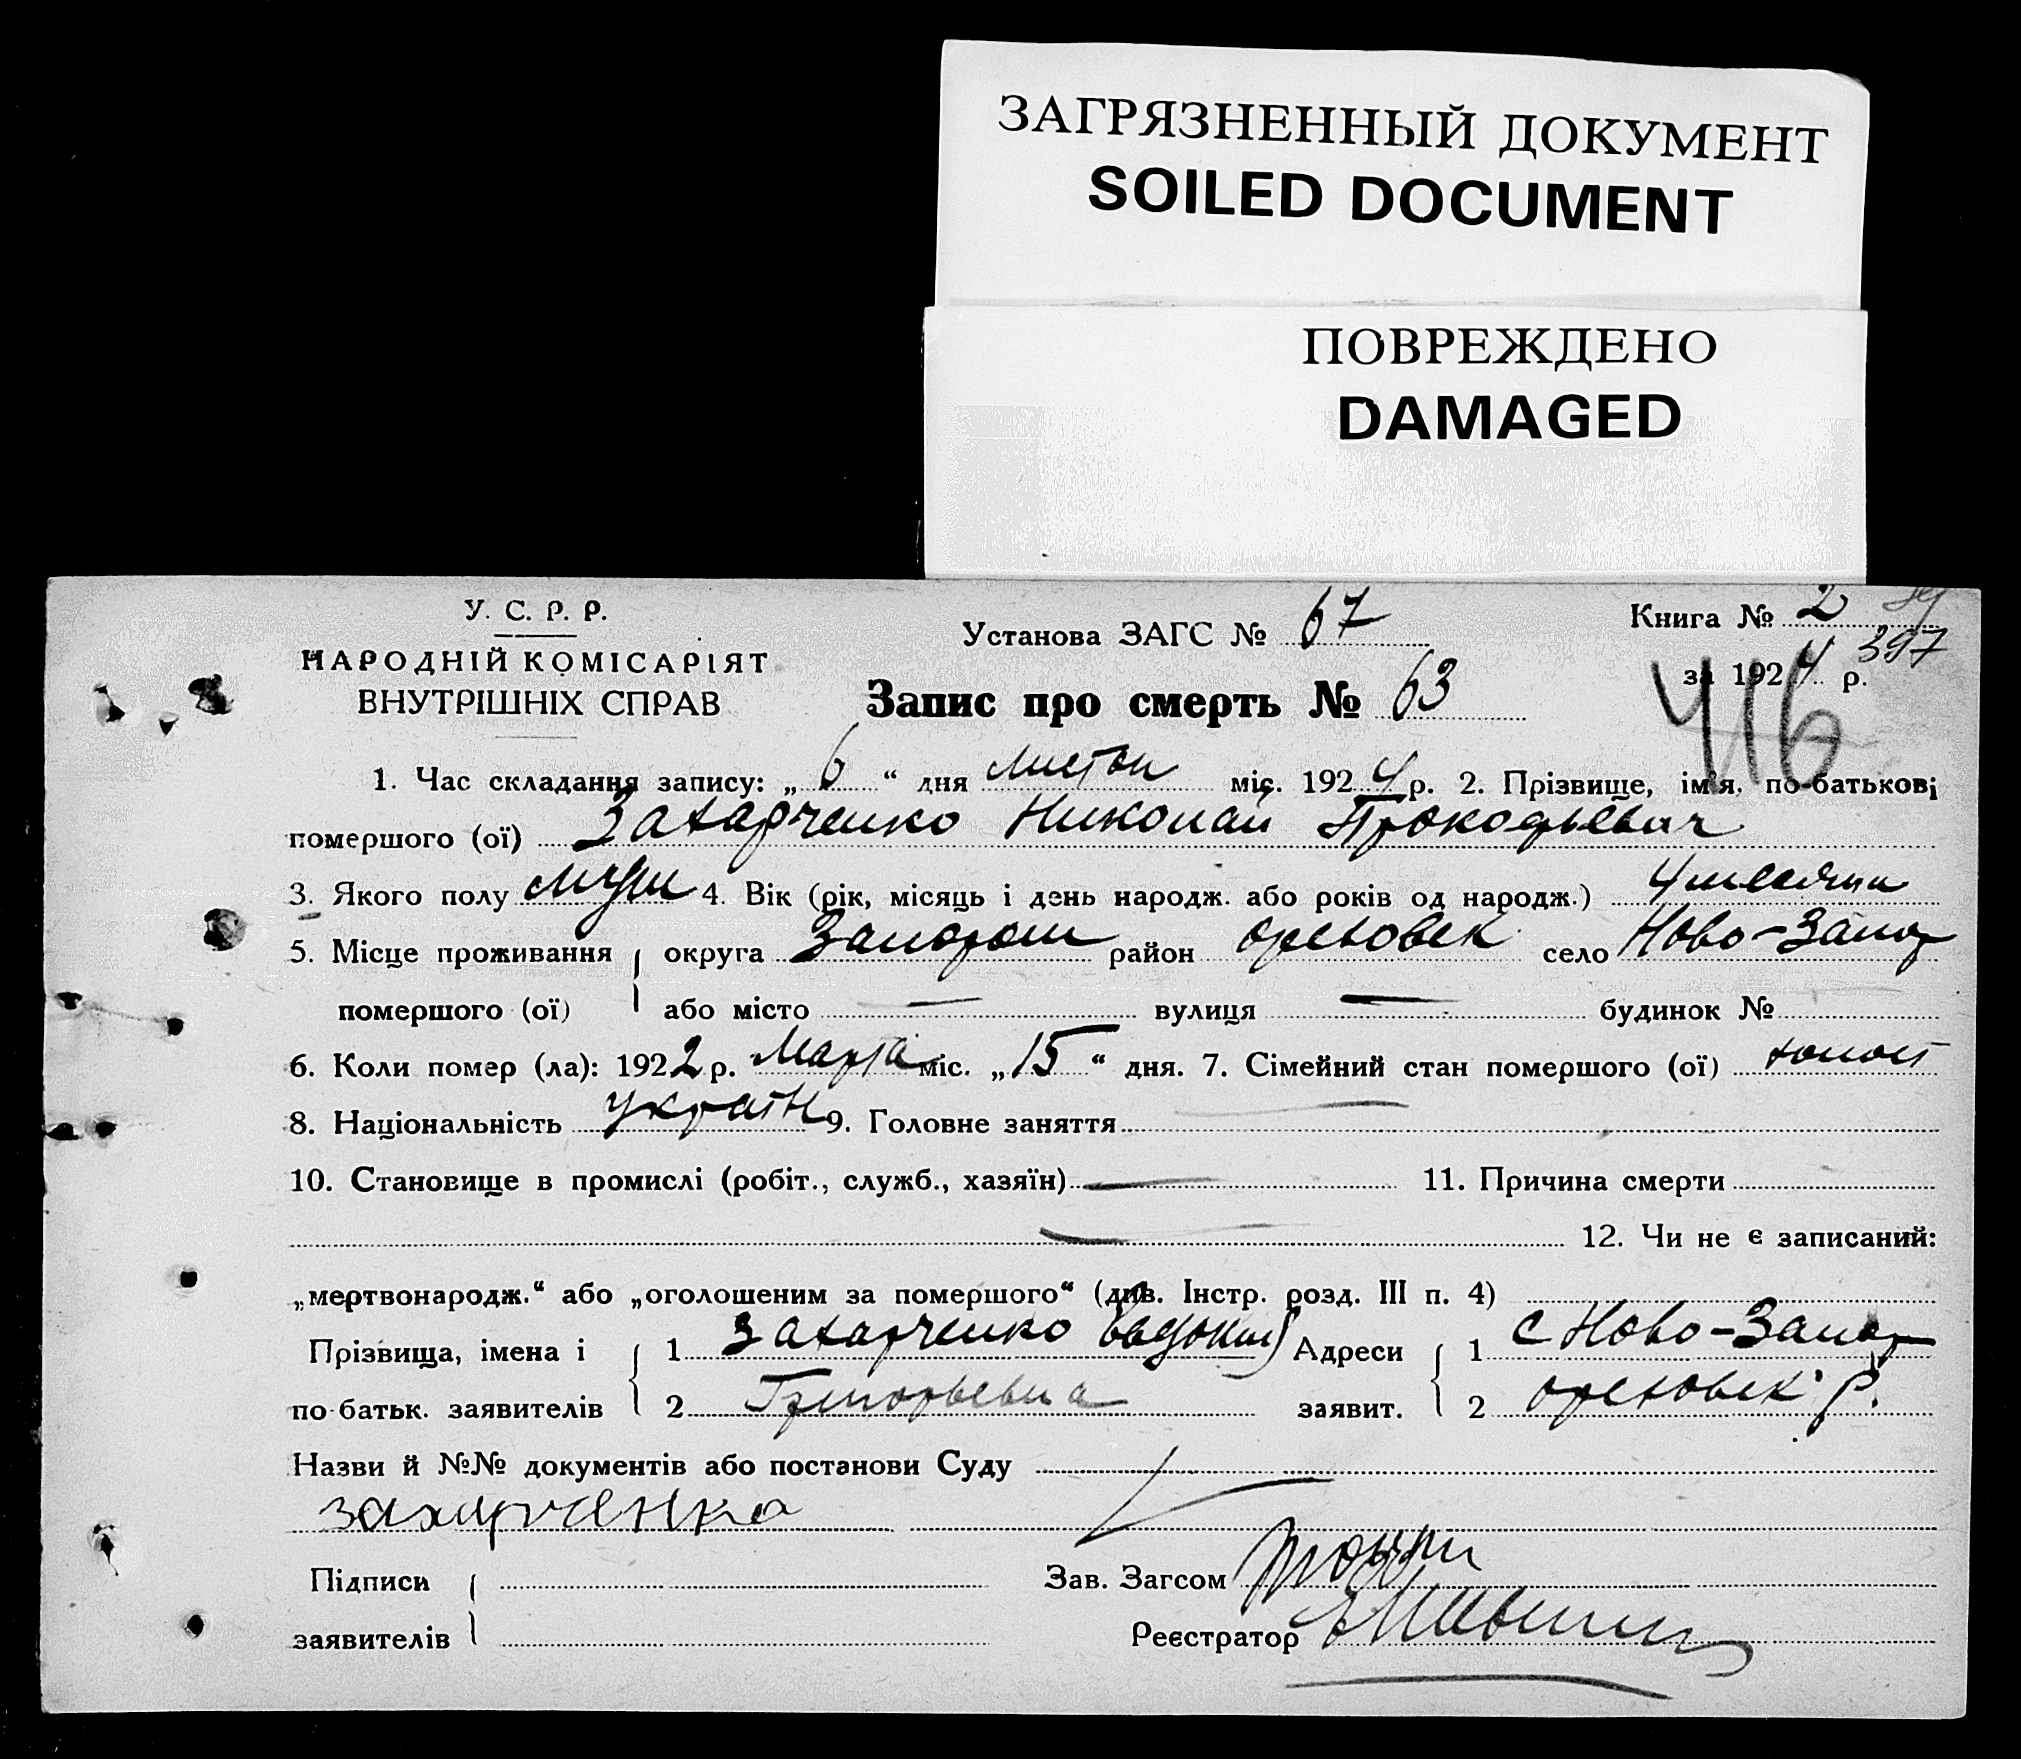 ЗАГРЯЗНЕННЫЙ ДОКУМЕНТ
SOILED DOCUMENT
ПОВРЕЖДЕНО
DAMAGED
У. С. Р. Р.
НАРОДНІЙ КОМІСАРІЯТ
ВНУТРІШНІХ СПРАВ
Установа ЗАГС № 67
Книга № 2
397
за 1924 р.
416
Запис про смерть № 63
1. Час складання запису: „ 6 “ дня листоп міс. 1924 р. 2. Прізвище, ім'я, по-батькові
помершого (ої) Захарченко Николай Прокофьевич
3. Якого полу муж 4. Вік (рік, місяць і день народж. або років од народж.) 4 месяца
5. Місце проживання округа Запорож район Ореховск село Ново-Запор
помершого (ої) або місто — вулиця — будинок №
6. Коли помер (ла): 1922 р. Марта міс. „ 15 “ дня. 7. Сімейний стан помершого (ої) холост
8. Національність україн 9. Головне заняття —
10. Становище в промислі (робіт., служб., хазяїн) — 11. Причина смерти
— 12. Чи не є записаний:
„мертвонародж.“ або „оголошеним за помершого“ (див. Інстр. розд. III п. 4)
Прізвища, імена і 1 Захарченко Евдокия Адреси 1 с Ново-Запор
по-батьк. заявителів 2 Григорьевна заявит. 2 Ореховск р.
Назви й №№ документів або постанови Суду
захарченко
Підписи Зав. Загсом
заявителів Реєстратор